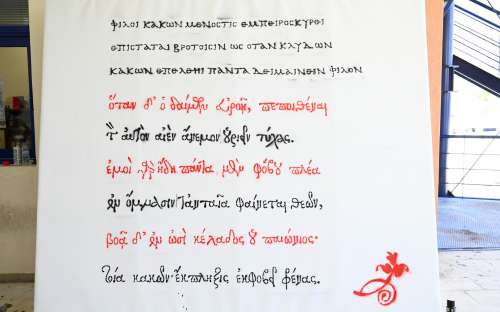 ΦΙΛΟΙ ΚΑΚΩΝ ΜΕΝΟCΤΙC ΕΜΠΕΙΡΟCΚΥΡΕΙ
ΕΠΙCΤΑΤΑΙ ΒΡΟΤΟΙCΙΝ ΩC ΟΤΑΝ ΚΛΥΔΩΝ
ΚΑΚΩΝ ΕΠΕΛΘΗΙ ΠΑΝΤΑ ΔΕΙΜΑΙΝΕΙΝ ΦΙΛΟΝ
ὅταν δ' ὁ δαίμων εὐροῇ, πεποιθέναι
τὸν αὐτὸν αἰὲν ἄνεμον οὐριεῖν τύχας.
ἐμοὶ γὰρ ἤδη πάντα μὲν φόβου πλέα
ἐν ὄμμασιν τἀνταῖα φαίνεται θεῶν,
βοᾷ δ' ἐν ὠσὶ κέλαδος οὐ παιώνιος·
τοία κακῶν ἔκπληξις ἐκφοβεῖ φρένας.